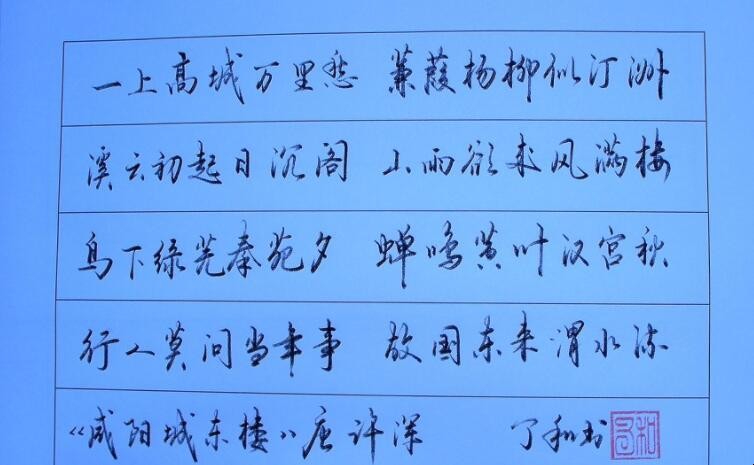 一上高城万里愁 蒹葭杨柳似汀洲
溪云初起日沉阁 山雨欲来风满楼
鸟下绿芜秦苑夕 蝉鸣黄叶汉宫秋
行人莫问当年事 故国东来渭水流
《咸阳城东楼》唐许浑 了和书